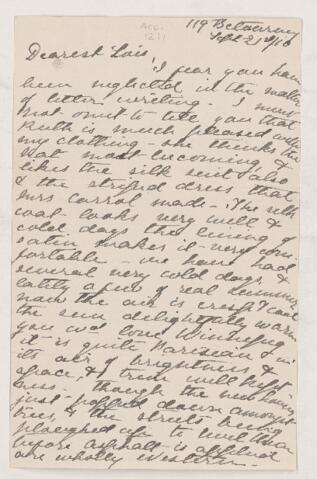 119 
Sept 21st/10
Acc.
1211
Dearest Lois
I fear you have
been neglected in the matter
of letter writing. I must
not omit to tell you that
Ruth is much pleased with
my clothing - she thinks the
hat most becoming &
likes the silk suit also
& the striped dress that
Mrs Carrol made - The silk
coat looks very well &
cold days the lining of
satin makes it very com-
fortable - we have had
several very cold days &
lately a few of real summer
now the air is crisp & cool
the sun delightfully warm
you wd love Winnipeg
it is quite Parisian in
its air of brightness &
space, & trim well kept
 though the new houses
just popped down amongst
trees, & the streets being
ploughed up to level them
before asphalt is applied
are wholly Western.